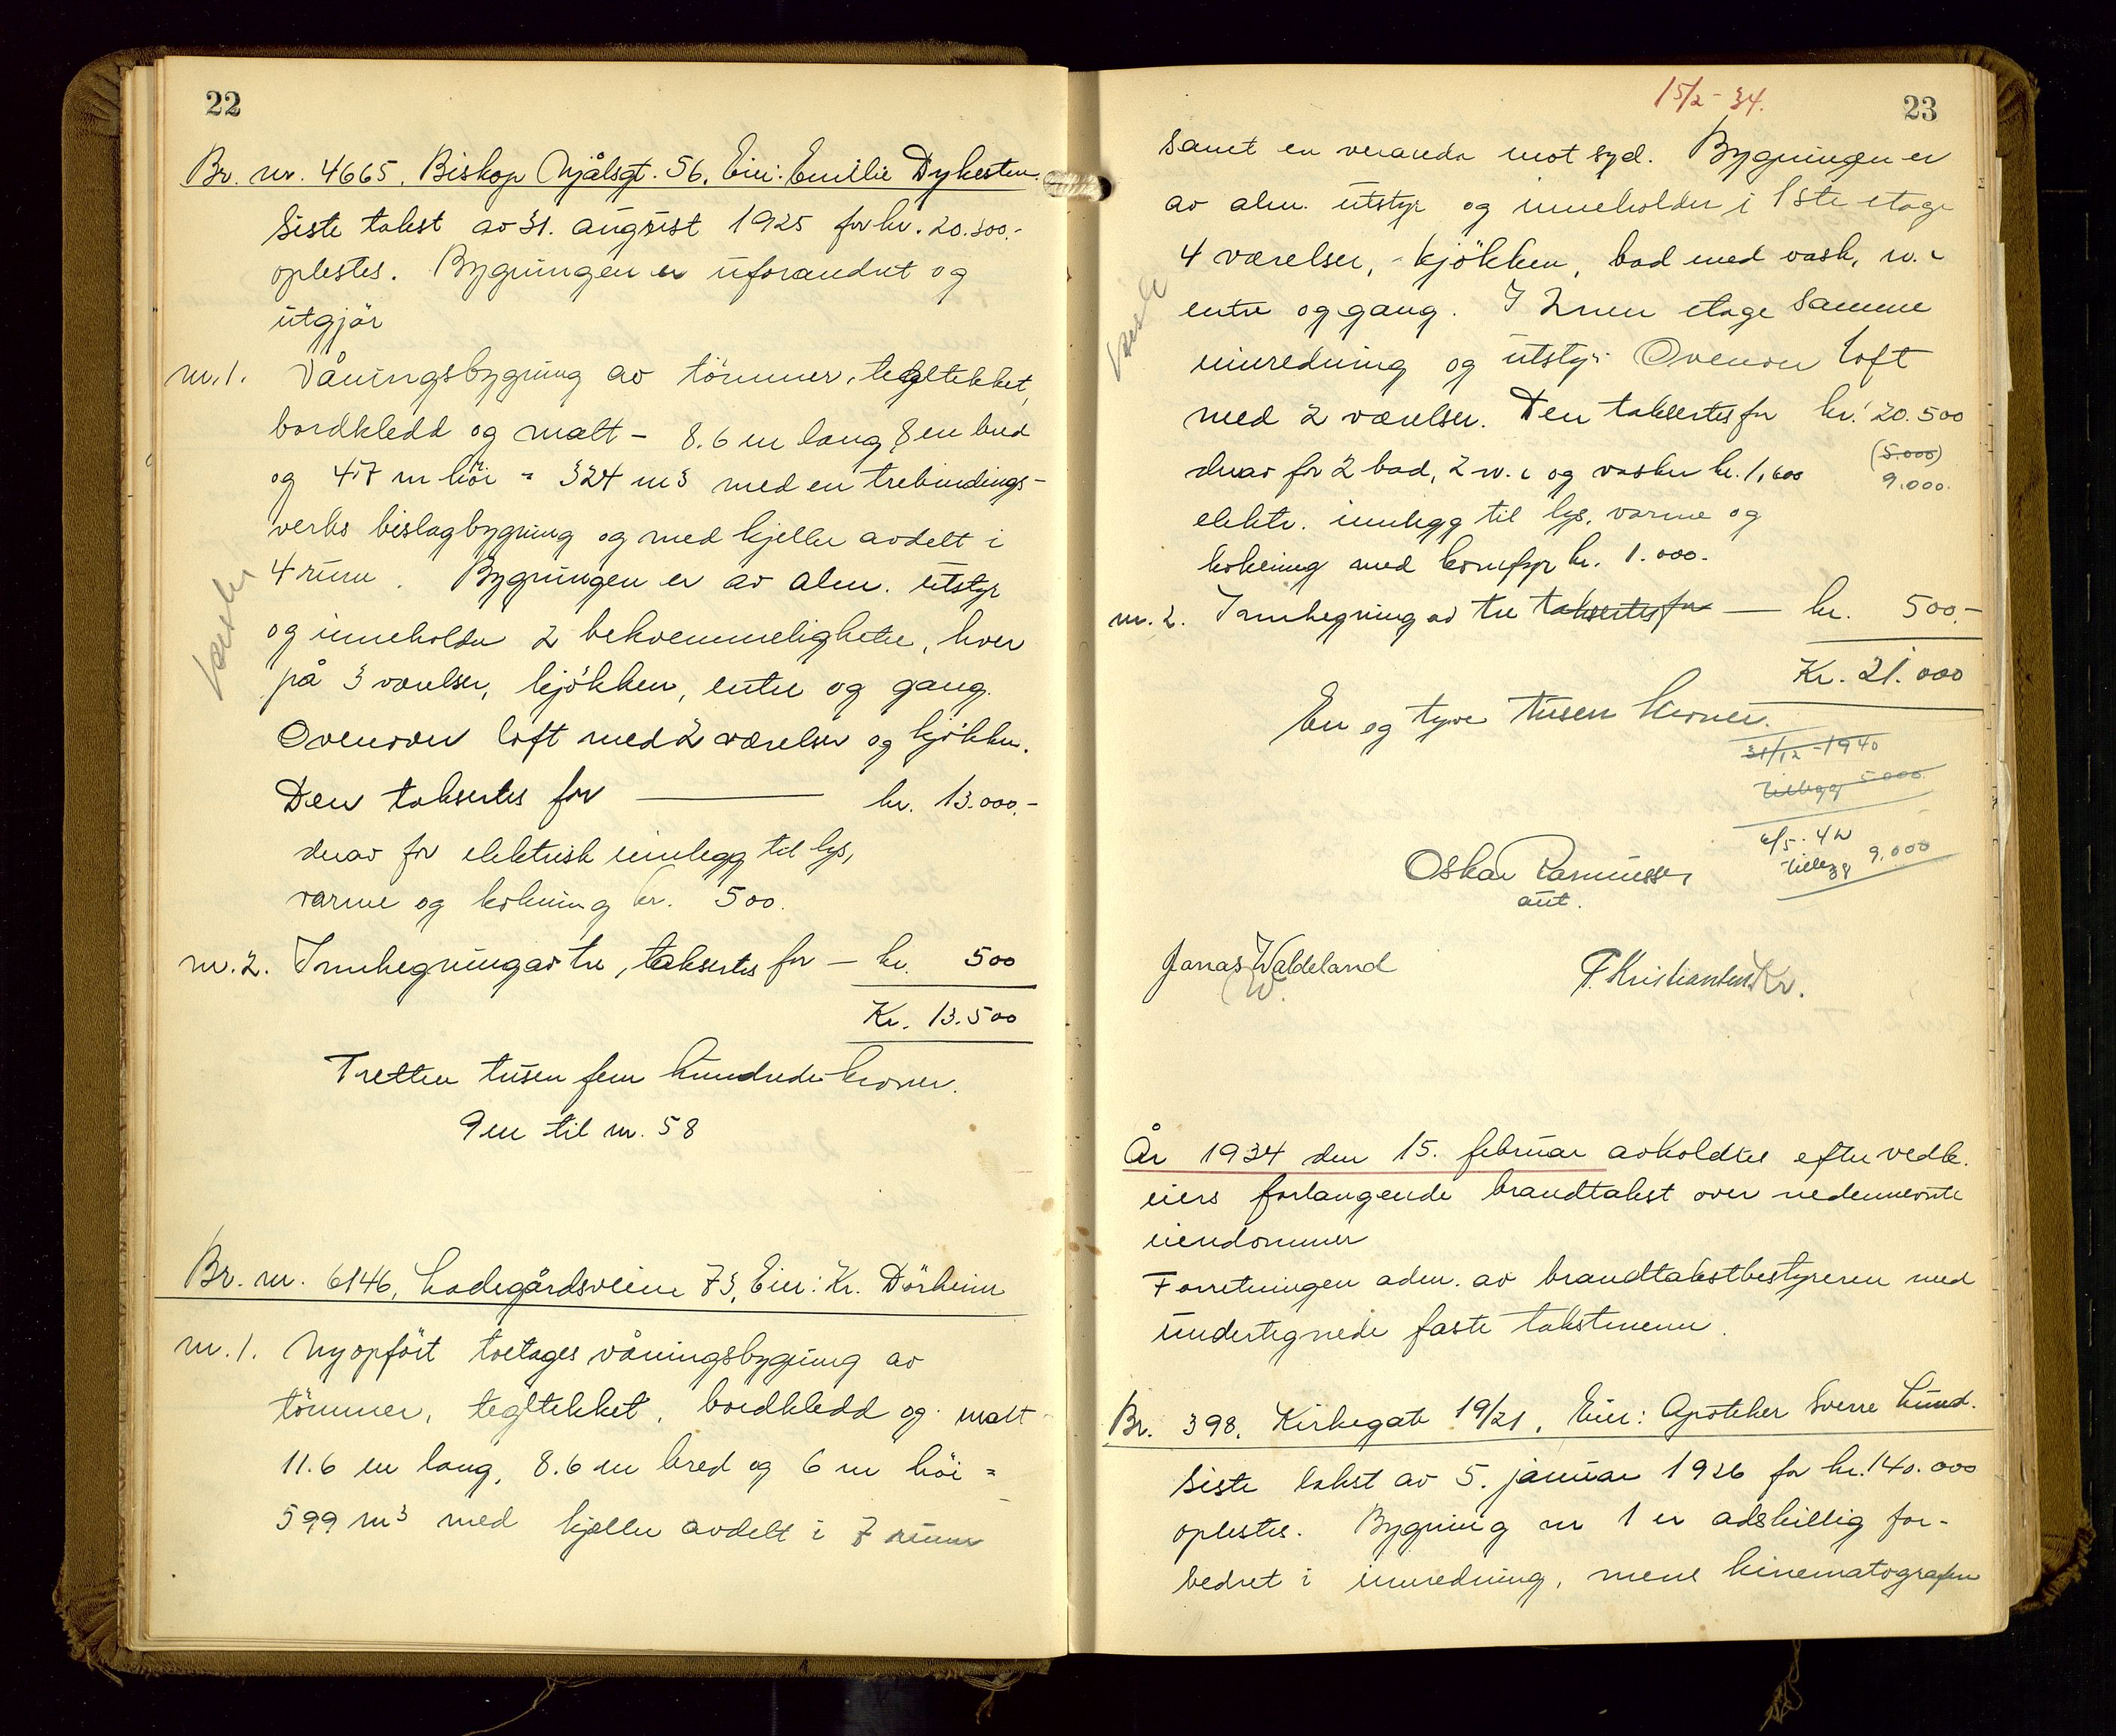 22
Br. nr. 4665, Biskop Njålsgt. 56, Eier: Emilie Dykesten.
Siste takst av 31. august 1925 for kr. 20.300.-
oplestes. Bygningen er uforandret og
utgjör
nr. 1. Våningsbygning av tömmer, tegltekket,
bordkledd og malt - 8.6 m lang, 8 m bred
og 4.7 m höi = 324 m3 med en trebindings-
verks bislagbygning og med kjeller avdelt i
4 rum. Bygningen er av alm. utstyr
og inneholder 2 bekvemmeligheter, hver
på 3 værelser, kjökken, entre og gang.
Ovenover loft med 2 værelser og kjökken.
Den taksertes for — kr. 13.000.-
derav for elektrisk innlegg til lys,
varme og kokning kr. 500.
nr. 2. Innhegning av tre, taksertes for - kr. 500
Kr. 13.500
Tretten tusen fem hundrede kroner.
9 m til nr. 58
Br. nr. 6146, Ladegårdsveien 73, Eier: Kr. Dörheim
nr. 1. Nyopfört toetages våningsbygning av
tömmer, tegltekket, bordkledd og malt
11.6 m lang, 8.6 m bred og 6 m höi =
599 m3 med kjeller avdelt i 7 rum
15/2-34.
23
samt en veranda mot syd. Bygningen er
av alm. utstyr og inneholder i 1ste etage
4 værelser, kjökken, bad med vask, w.c
entre og gang. I 2nen etage samme
innredning og utstyr. Ovenover loft
med 2 værelser. Den taksertes for kr. 20.500
(5.000)
derav for 2 bad, 2 w.c og vasker kr. 1,600 9.000.
elektr. innlegg til lys, varme og
kokning med komfyr kr. 1.000.
nr. 2. Innhegning av tre taksertes for — kr. 500.-
Kr. 21.000
En og tyve tusen kroner.
31/12-1940
tillegg 5000
6/5-42
tillegg 9.000
Oskar Rasmussen
aut.
Jonas Waldeland
W.
F. Kristiansen Kr.
År 1934 den 15. februar avholdtes efter vedk.
eiers forlangende brandtakst over nedennevnte
eiendommer
Forretningen adm. av brandtakstbestyreren med
undertegnede faste takstmenn.
Br. 398, Kirkegate 19/21, Eier: Apoteker Sverre Lund.
Siste takst av 5. januar 1926 for kr. 140.000
oplestes. Bygning nr 1 er adskillig for-
bedret i innredning, mens kinematografen